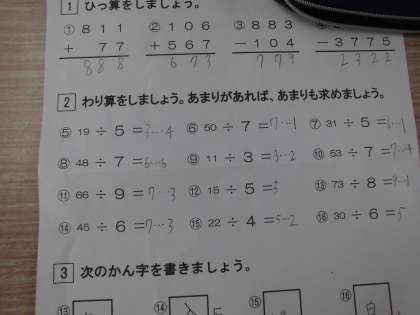 1 ひっ算をしましょう。
① 811 ② 106 ③ 883
+ 77 + 567 - 104 - 3775
888 673 779 2322
2 わり算をしましょう。あまりがあれば、あまりも求めましょう。
⑤ 19 ÷ 5 =3…4 ⑥ 50 ÷ 7 =7…1 ⑦ 31 ÷ 5 =6…1
⑧ 48 ÷ 7 =6…6 ⑨ 11 ÷ 3 =3…2 ⑩ 53 ÷ 7 =7…4
⑪ 66 ÷ 9 =7…3 ⑫ 15 ÷ 5 =3 ⑬ 73 ÷ 8 =9…1
⑭ 45 ÷ 6 =7…3 ⑮ 22 ÷ 4 =5…2 ⑯ 30 ÷ 6 =5
3 次のかん字を書きましょう。
⑬ ⑭ ⑮ ⑯